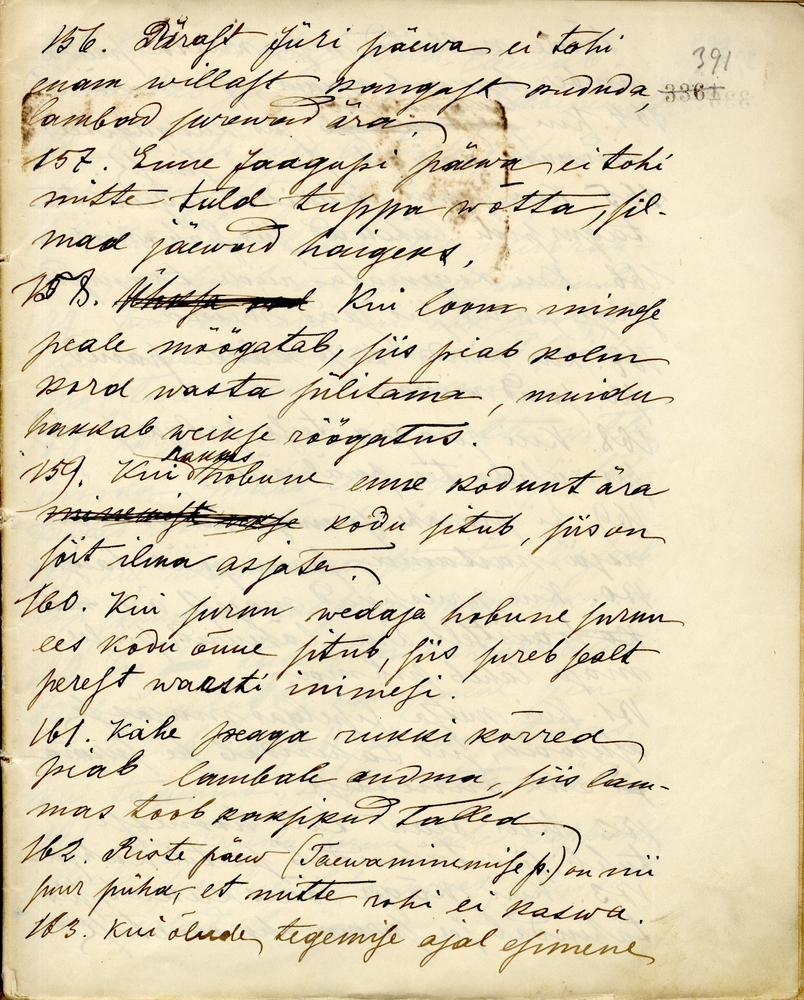 391
3361
156. Pärast Jüri päewa ei tohi
enam willast kangast kududa,
lambad surewad ära.
157. Enne Jaagupi päewa ei tohi
mitte tuld tuppa wõtta, sil-
mad jäewad haigeks.
158. Kui loom inimese
peale möögatab, siis piab kolm
kord wasta sülitama, muidu
hakkab weikse röögatus.
rakkes
159. Kui hobune enne kodunt ära
kodu situb, siis on
sõit ilma asjata
160. Kui surnu wedaja hobune surnu
ees kodu õuue situb, siis sureb sealt
perest warsti inimesi.
161. Kahe peaga rukki kõrred
piab lambale andma, siis lam-
mas toob kaksikud talled
162. Riste päew (Taewaminemise p.) on nii
suur püha, et mitte rohi ei kaswa.
163. Kui õlude tegemise ajal esimene